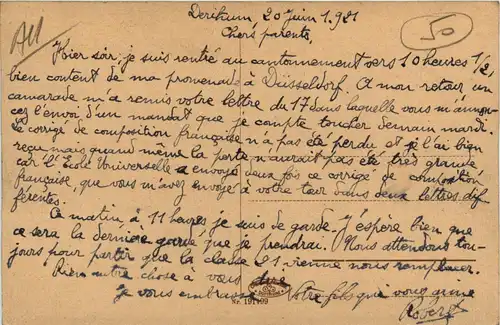 All
50
Derikum, 20 Juin 1921
Chers parents,
Hier soir, je suis rentré au cantonnement vers 10 heures 1/2
bien content de ma promenade à Düsseldorf. A mon retour un
camarade m'a remis votre lettre du 17 dans laquelle vous m'annon-
cez l'envoi d'un mandat que je compte toucher demain mardi
Le corrigé de composition française n'a pas été perdu et je l'ai bien
reçu mais quand même la perte n'aurait pas été très grande
car l'Ecole Universelle a envoyé deux fois ce corrigé de composition
française, que vous m'avez envoyé à votre tour dans deux lettres dif-
férentes.
Ce matin à 11 heures je suis de garde. J'éspère bien que
ce sera la dernière garde que je prendrai. Nous attendons tou-
jours pour partir que la classe 21 vienne nous remplacer.
Rien autre chose à vous dire
Je vous embrasse Votre fils qui vous aime
Robert
Nr. 191199